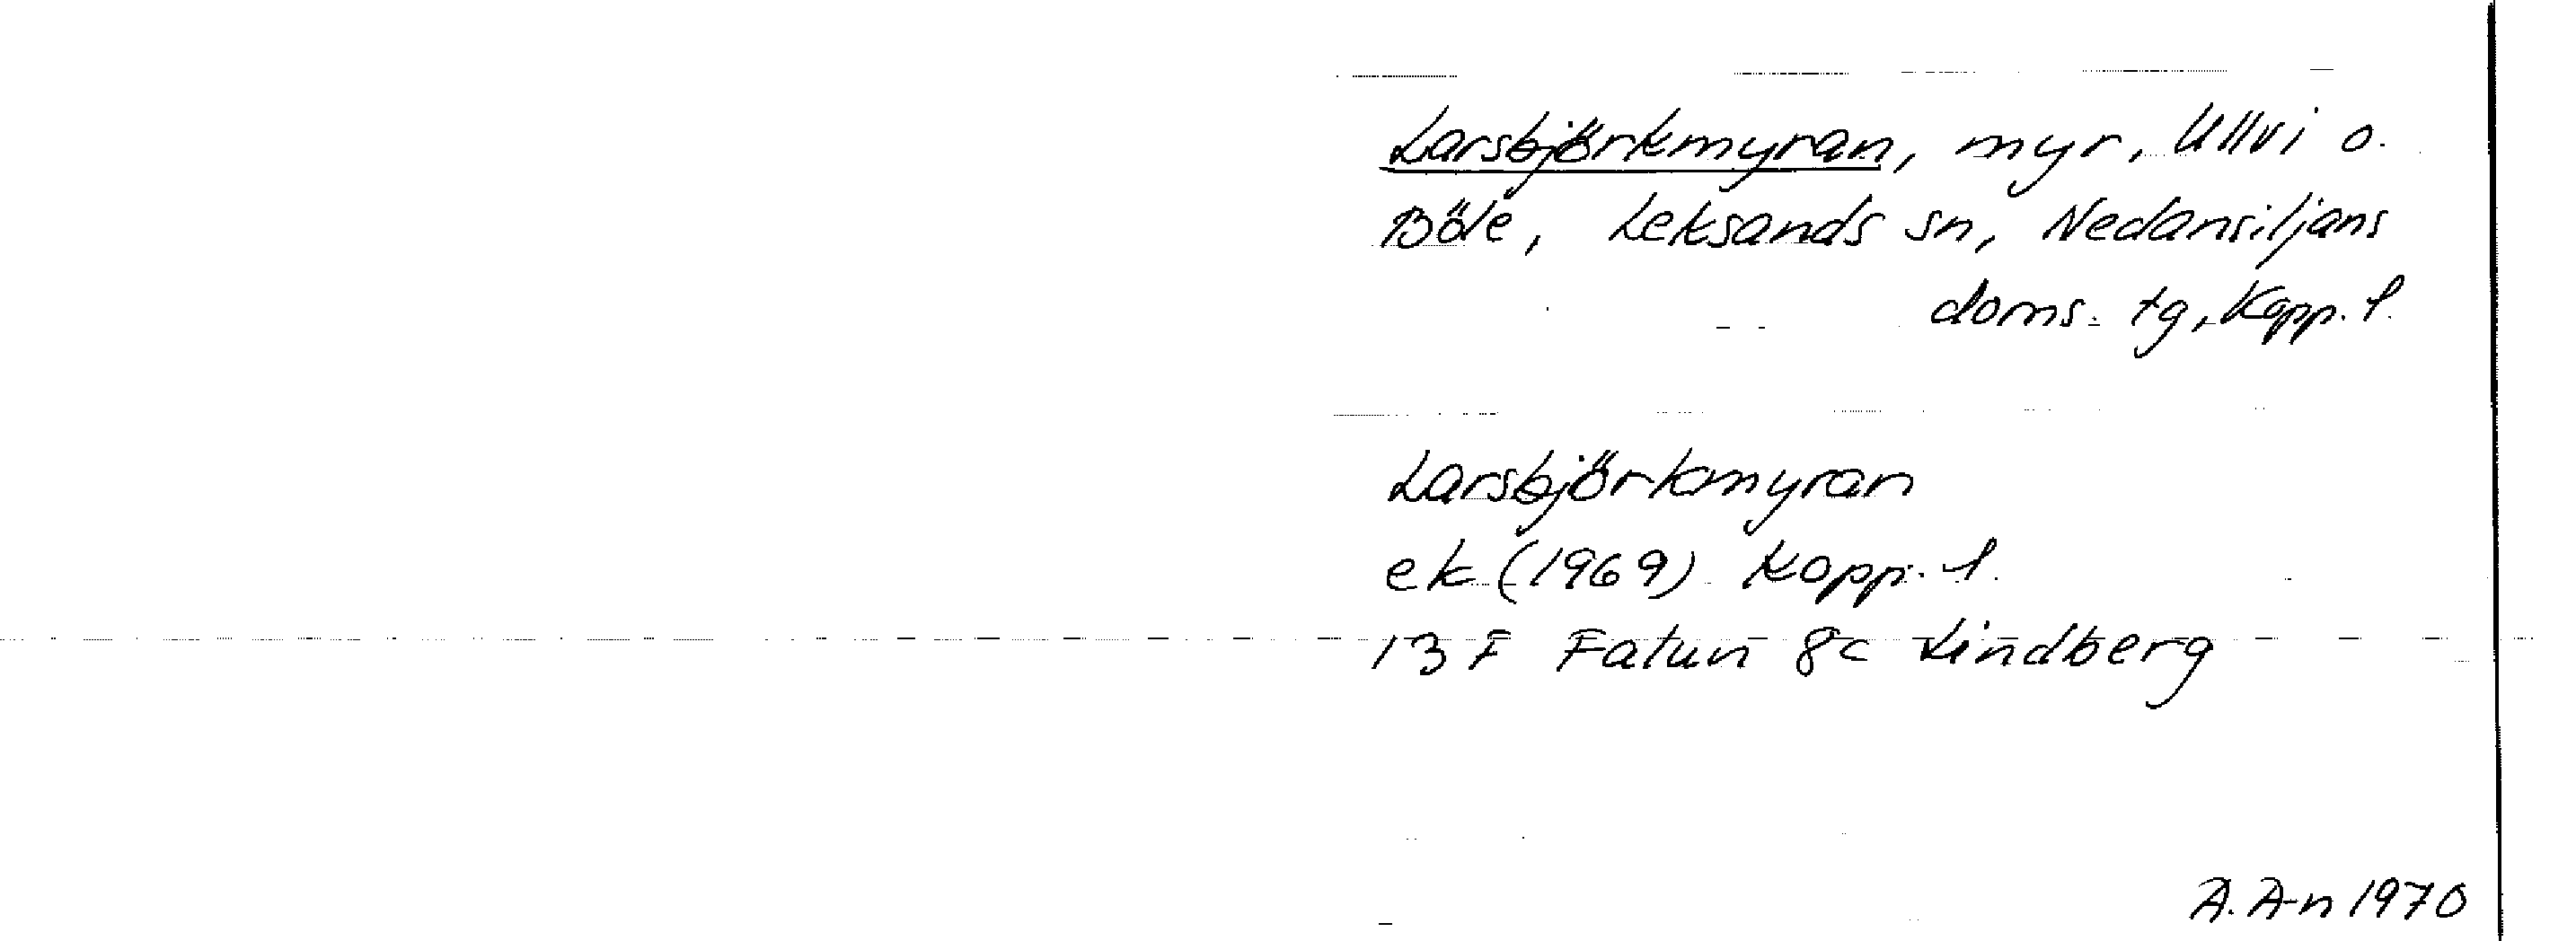 Larsbjörkmyran, myr, Ullvi o.
Böle, Leksands sn, Nedansiljans
doms. tg, Kopp. l.
Larsbjörkmyran
ek (1969) Kopp. l.
13 F Falun 8c Lindberg
A. A-n 1970